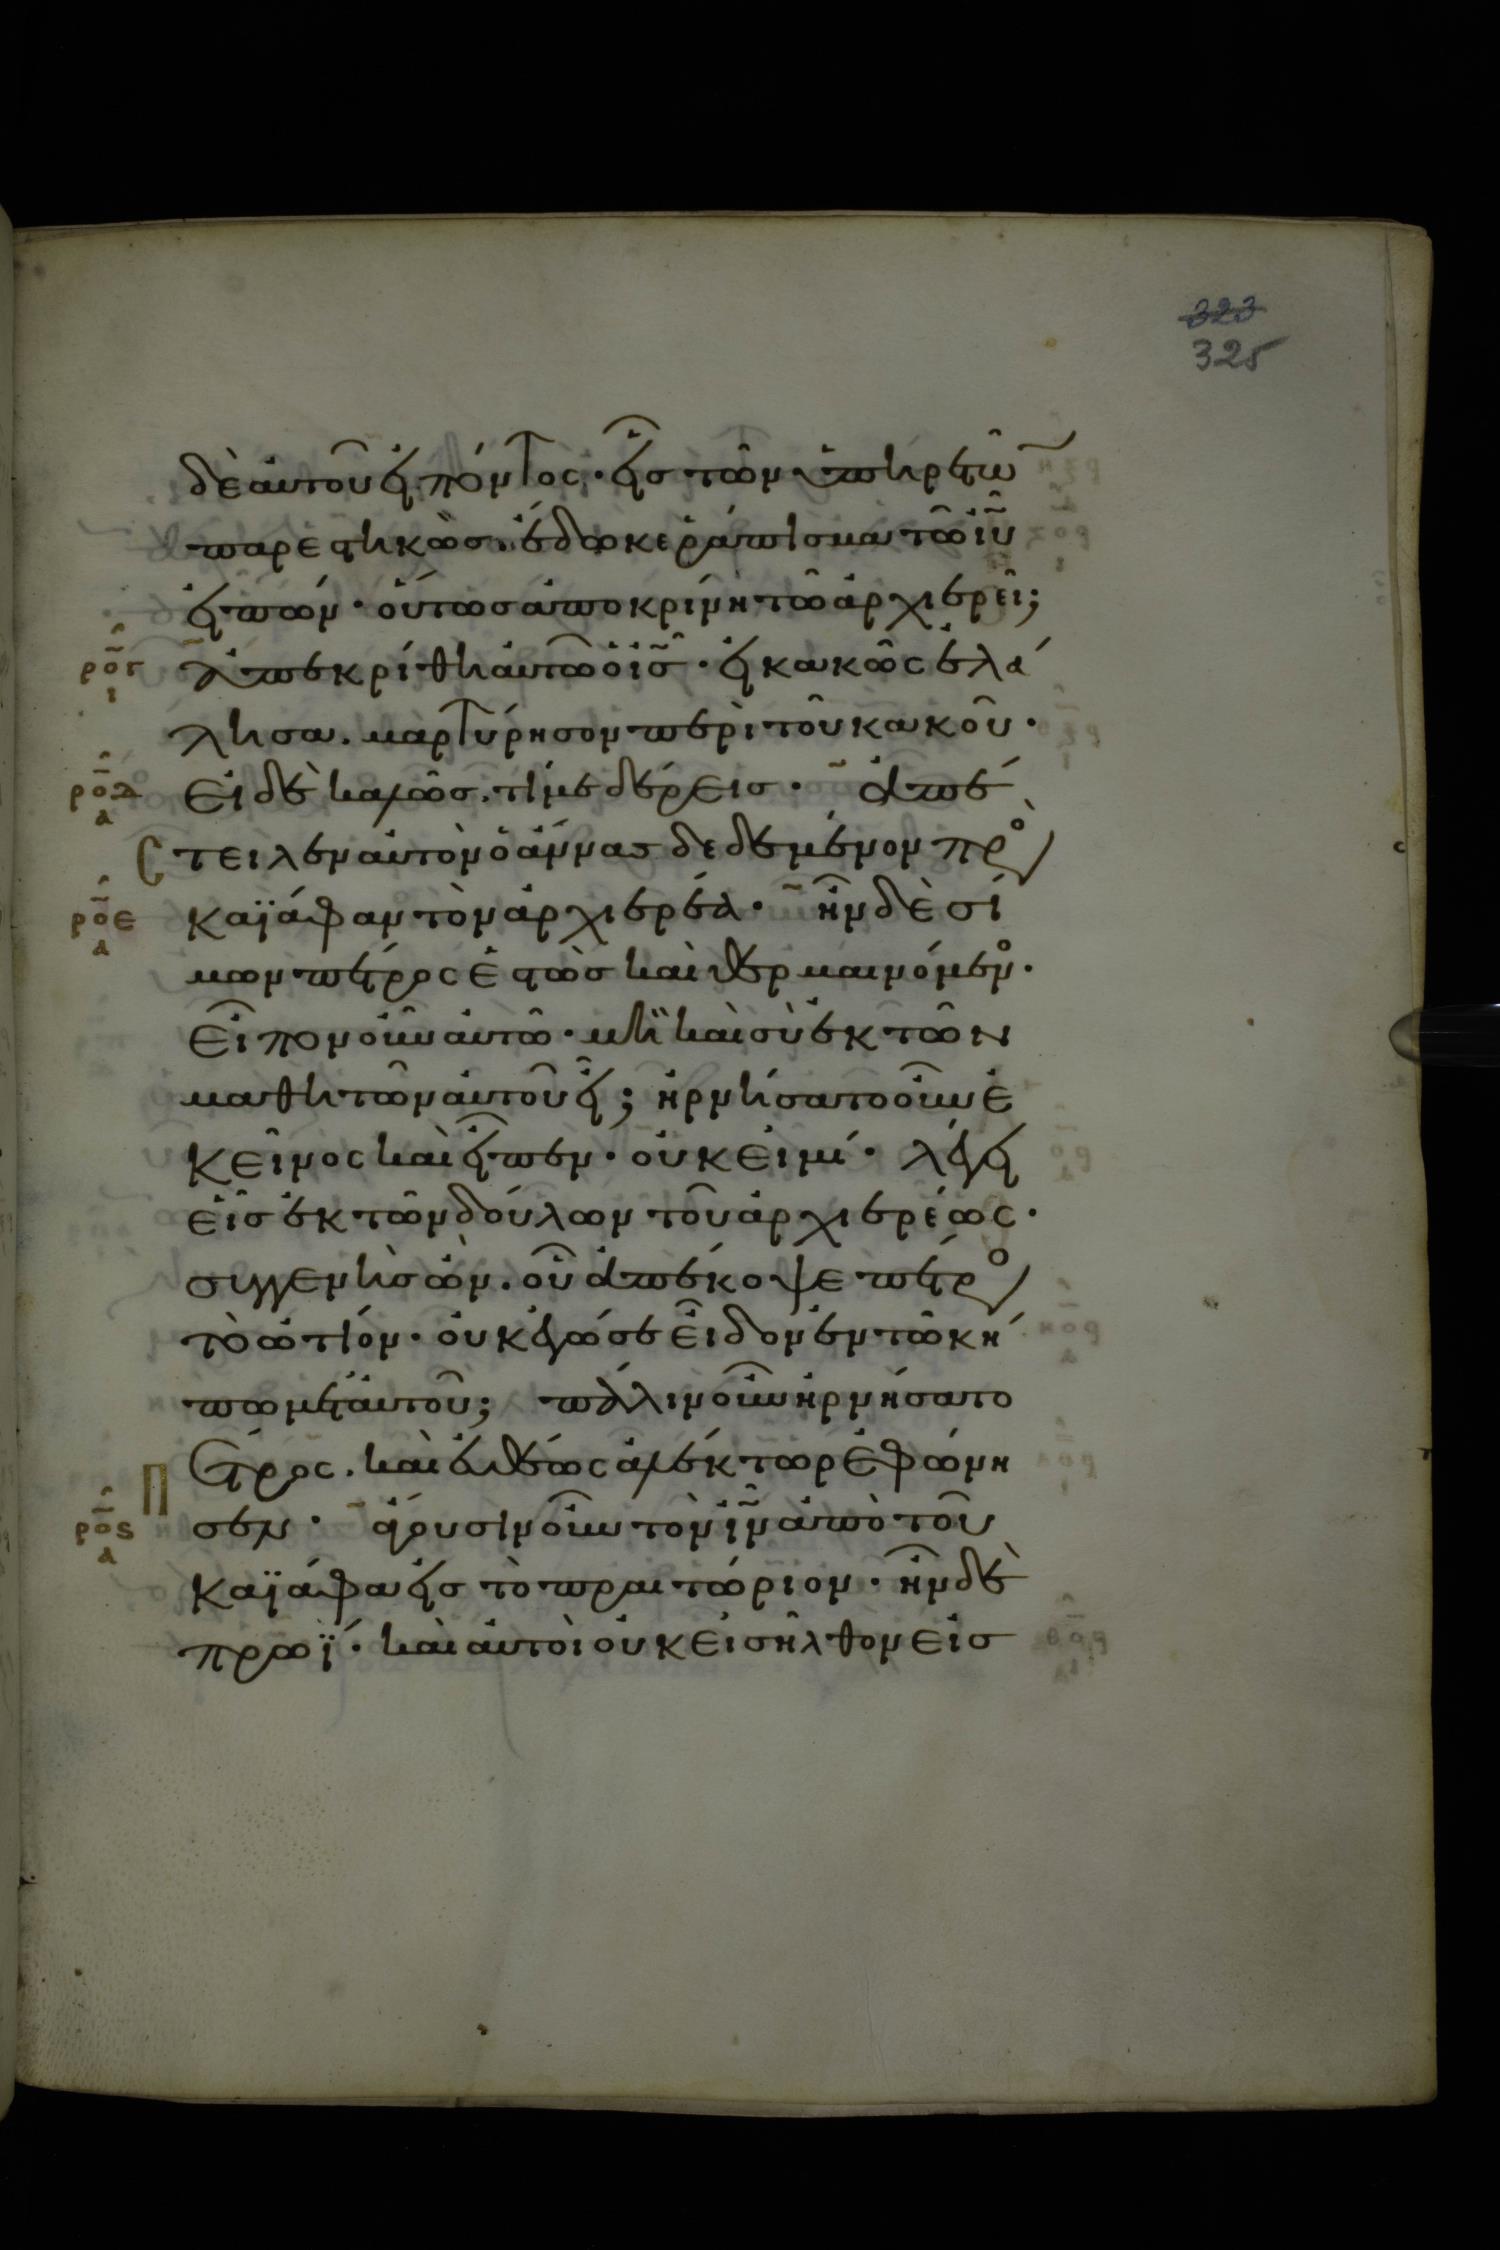 323
325
δὲ αὐτοῦ εἰπόντος· εἷς τῶν ὑπηρετῶ
παρεστηκὼς· ἔδωκε ῥάπισμα τῶ ἰῦ
εἰπών· οὕτως ἀποκρίνη τῶ ἀρχιερεῖ;
ρογ ι ἀπεκρίθη αὐτῶ ὁ ἰς̃· εἰ κακῶς ἐλά
λησα. μαρτύρησον περὶ τοῦ κακοῦ·
ροδ α εἰ δὲ καλῶς. τί με δέρεις· ἀπέ
στειλεν αὐτὸν ὁ ἄννας δεδεμένον πρὸ
ροε α καϊάφαν τὸν ἀρχιερέα· ἦν δὲ σί
μων πέτρος ἑστὼς καὶ θερμαινόμενο·
εἶπον οὖν αὐτῶ· μὴ καὶ σὺ ἐκ τῶν
μαθητῶν αὐτοῦ εἶ; ἠρνήσατο οὖν ἐ
κεῖνος καὶ εἶπεν· οὐκ εἰμί· λέγει
εἷς ἐκ τῶν δούλων τοῦ ἀρχιερέως·
συγγενὴς ὢν. οὗ ἀπέκοψε πέτρο
τὸ ὠτίον· οὐκ ἐγώ σε εἶδον ἐν τῶ κή
πω μετ᾽ αὐτοῦ; πάλιν οὖν ἠρνήσατο
πέτρος. καὶ εὐθέως ἀλέκτωρ ἐφώνη
ροϛ α σεν· ἄγουσιν οὖν τὸν ἰν̃ ἀπὸ τοῦ
καϊάφα εἰς τὸ πραιτώριον· ἦν δὲ
πρωΐ· καὶ αὐτοὶ οὐκ εἰσῆλθον εἰς